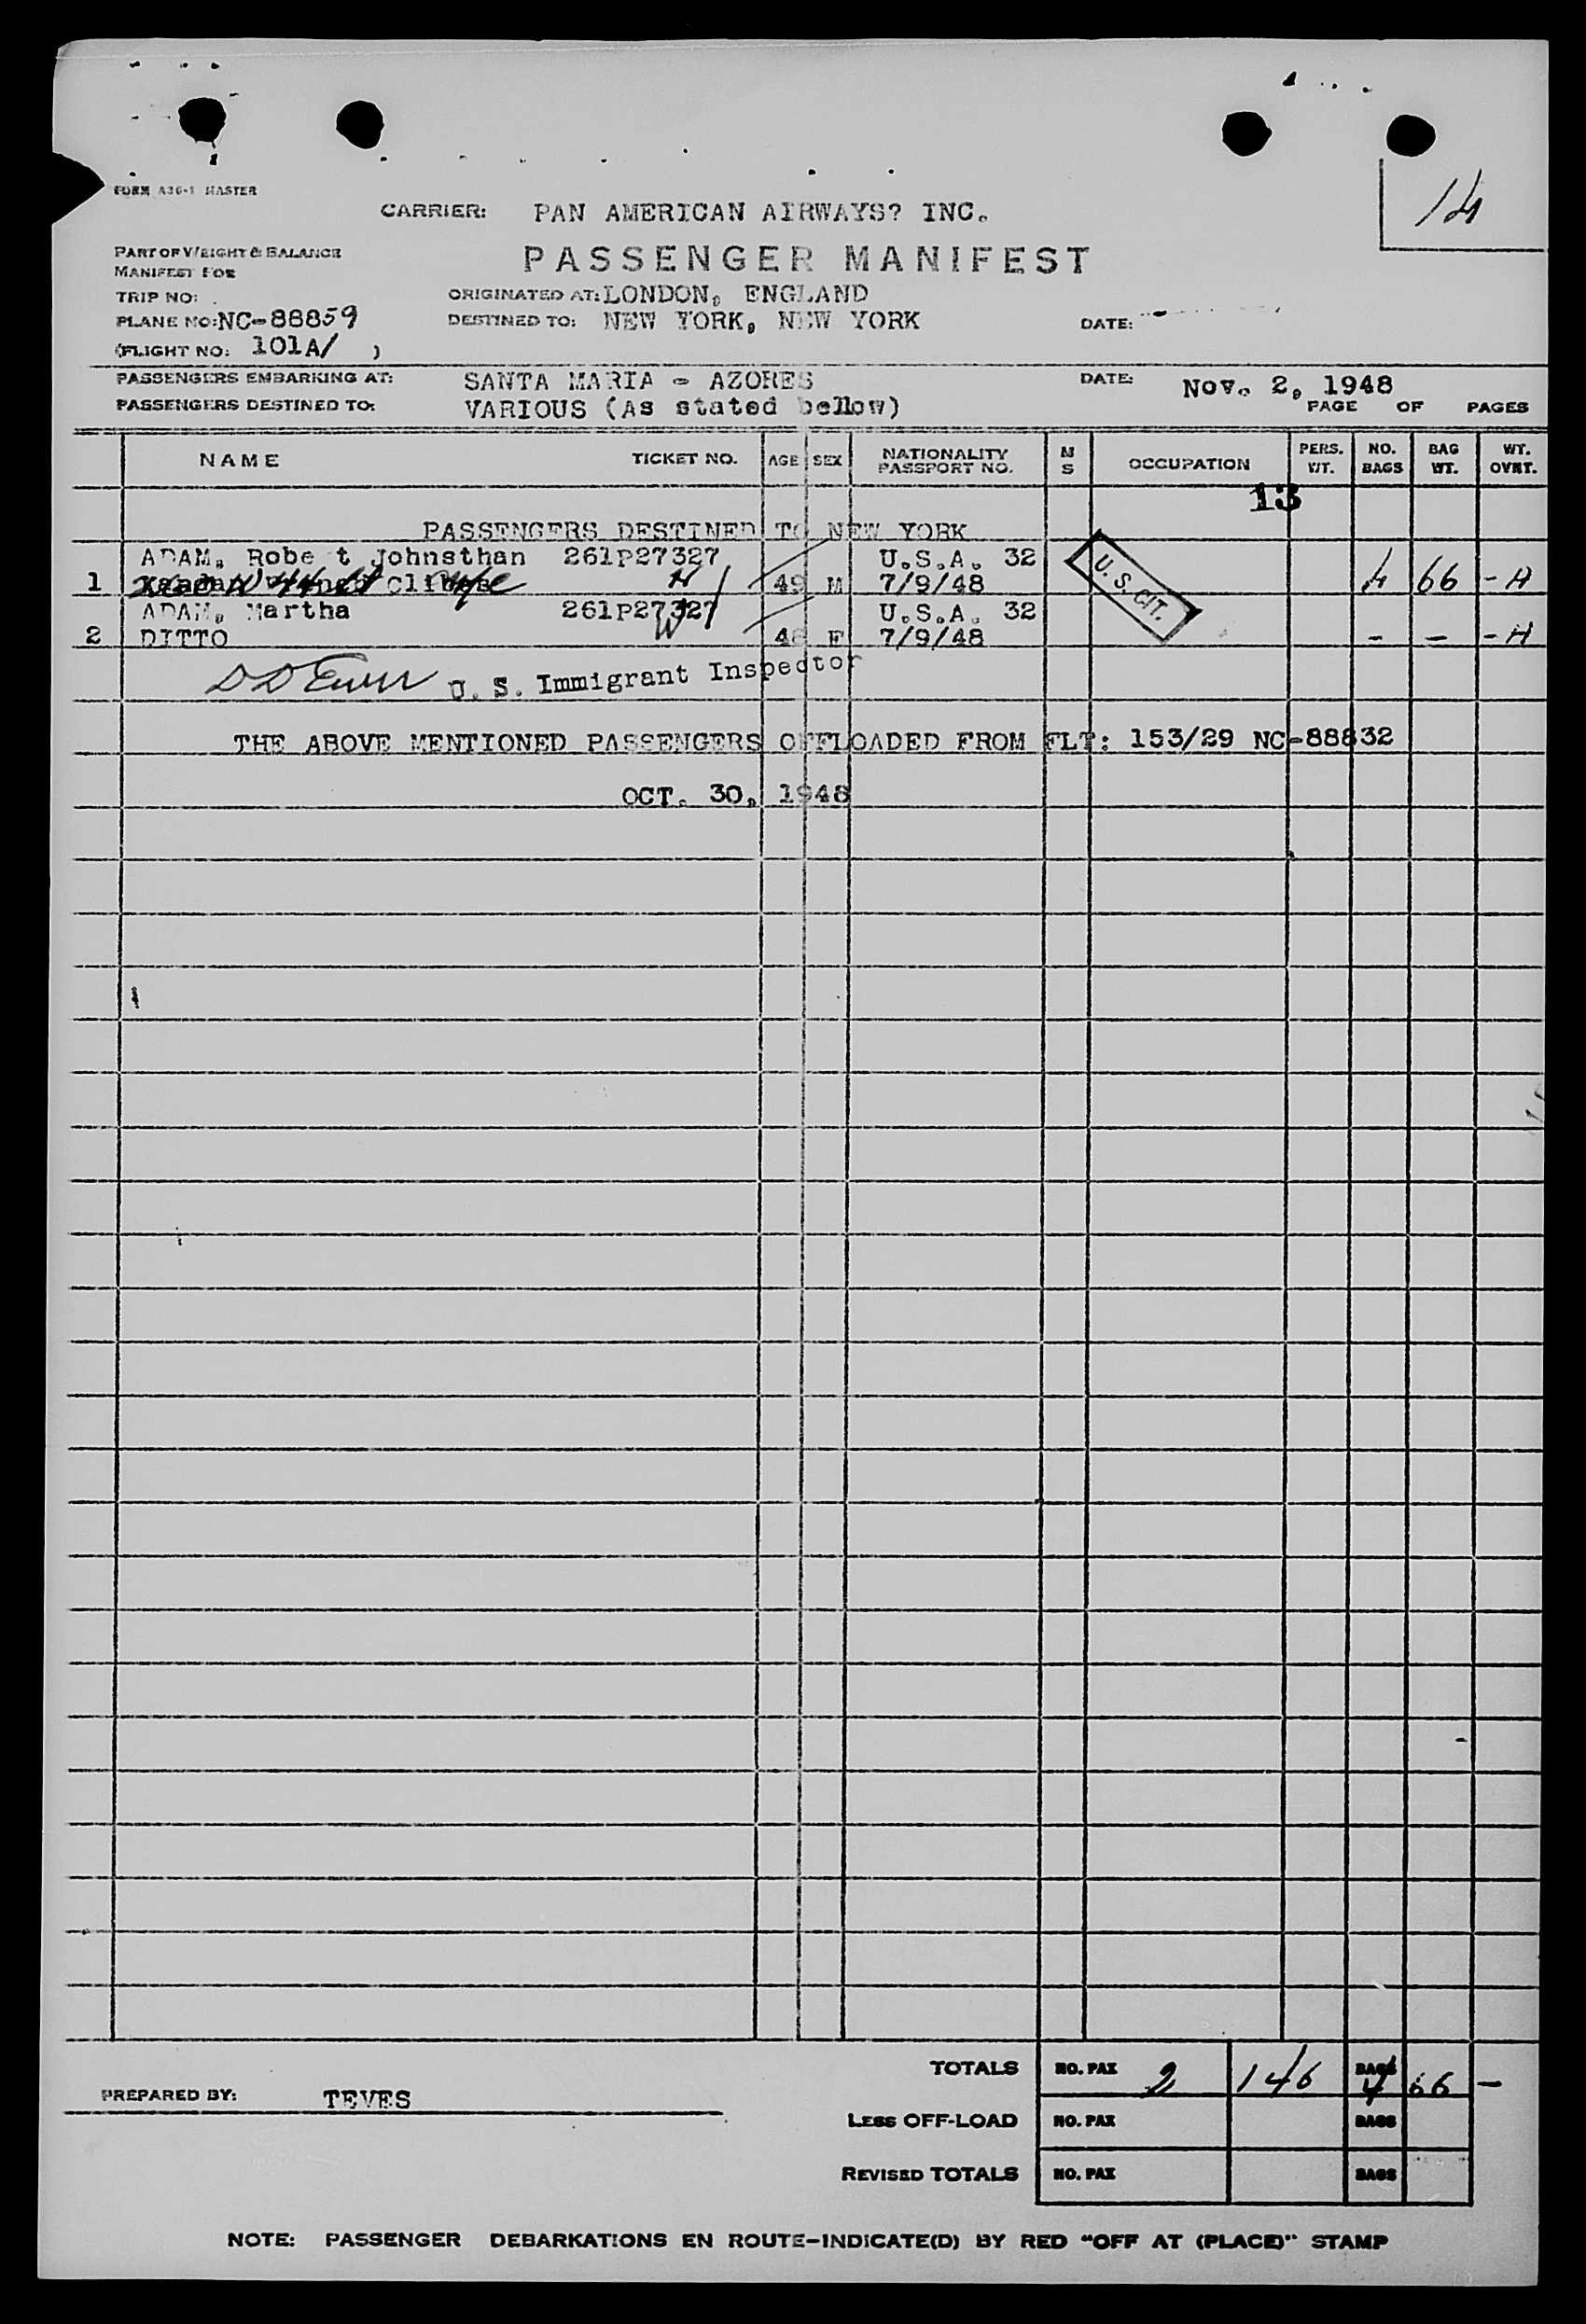 FORM A36-1 MASTER
14
CARRIER: PAN AMERICAN AIRWAYS? INC.
PART OF WEIGHT & BALANCE
MANIFEST FOR
PASSENGER MANIFEST
TRIP NO:
ORIGINATED AT: LONDON, ENGLAND
PLANE NO: NC-88859
DESTINED TO: NEW YORK, NEW YORK
DATE:
(FLIGHT NO: 101A/ )
PASSENGERS EMBARKING AT: SANTA MARIA - AZORES
DATE: Nov. 2, 1948
PASSENGERS DESTINED TO: VARIOUS (As stated bellow)
PAGE OF PAGES
NAME TICKET NO. AGE SEX NATIONALITY PASSPORT NO. M S OCCUPATION PERS. WT. NO. BAGS BAG WT. WT. OVNT.
13
PASSENGERS DESTINED TO NEW YORK
ADAM, Robe t Johnsthan 261P27327 U.S.A. 32
1 49 M 7/9/48 U.S. CIT. 4 66 - H
ADAM, Martha 261P27327 U.S.A. 32
2 DITTO 48 F 7/9/48 - - - H
U. S. Immigrant Inspector
THE ABOVE MENTIONED PASSENGERS OFFLOADED FROM FLT: 153/29 NC-88832
OCT. 30, 1948
TOTALS NO. PAX 2 146 BAGS 4 66 -
PREPARED BY: TEVES
LESS OFF-LOAD NO. PAX BAGS
REVISED TOTALS NO. PAX BAGS
NOTE: PASSENGER DEBARKATIONS EN ROUTE-INDICATE(D) BY RED "OFF AT (PLACE)" STAMP